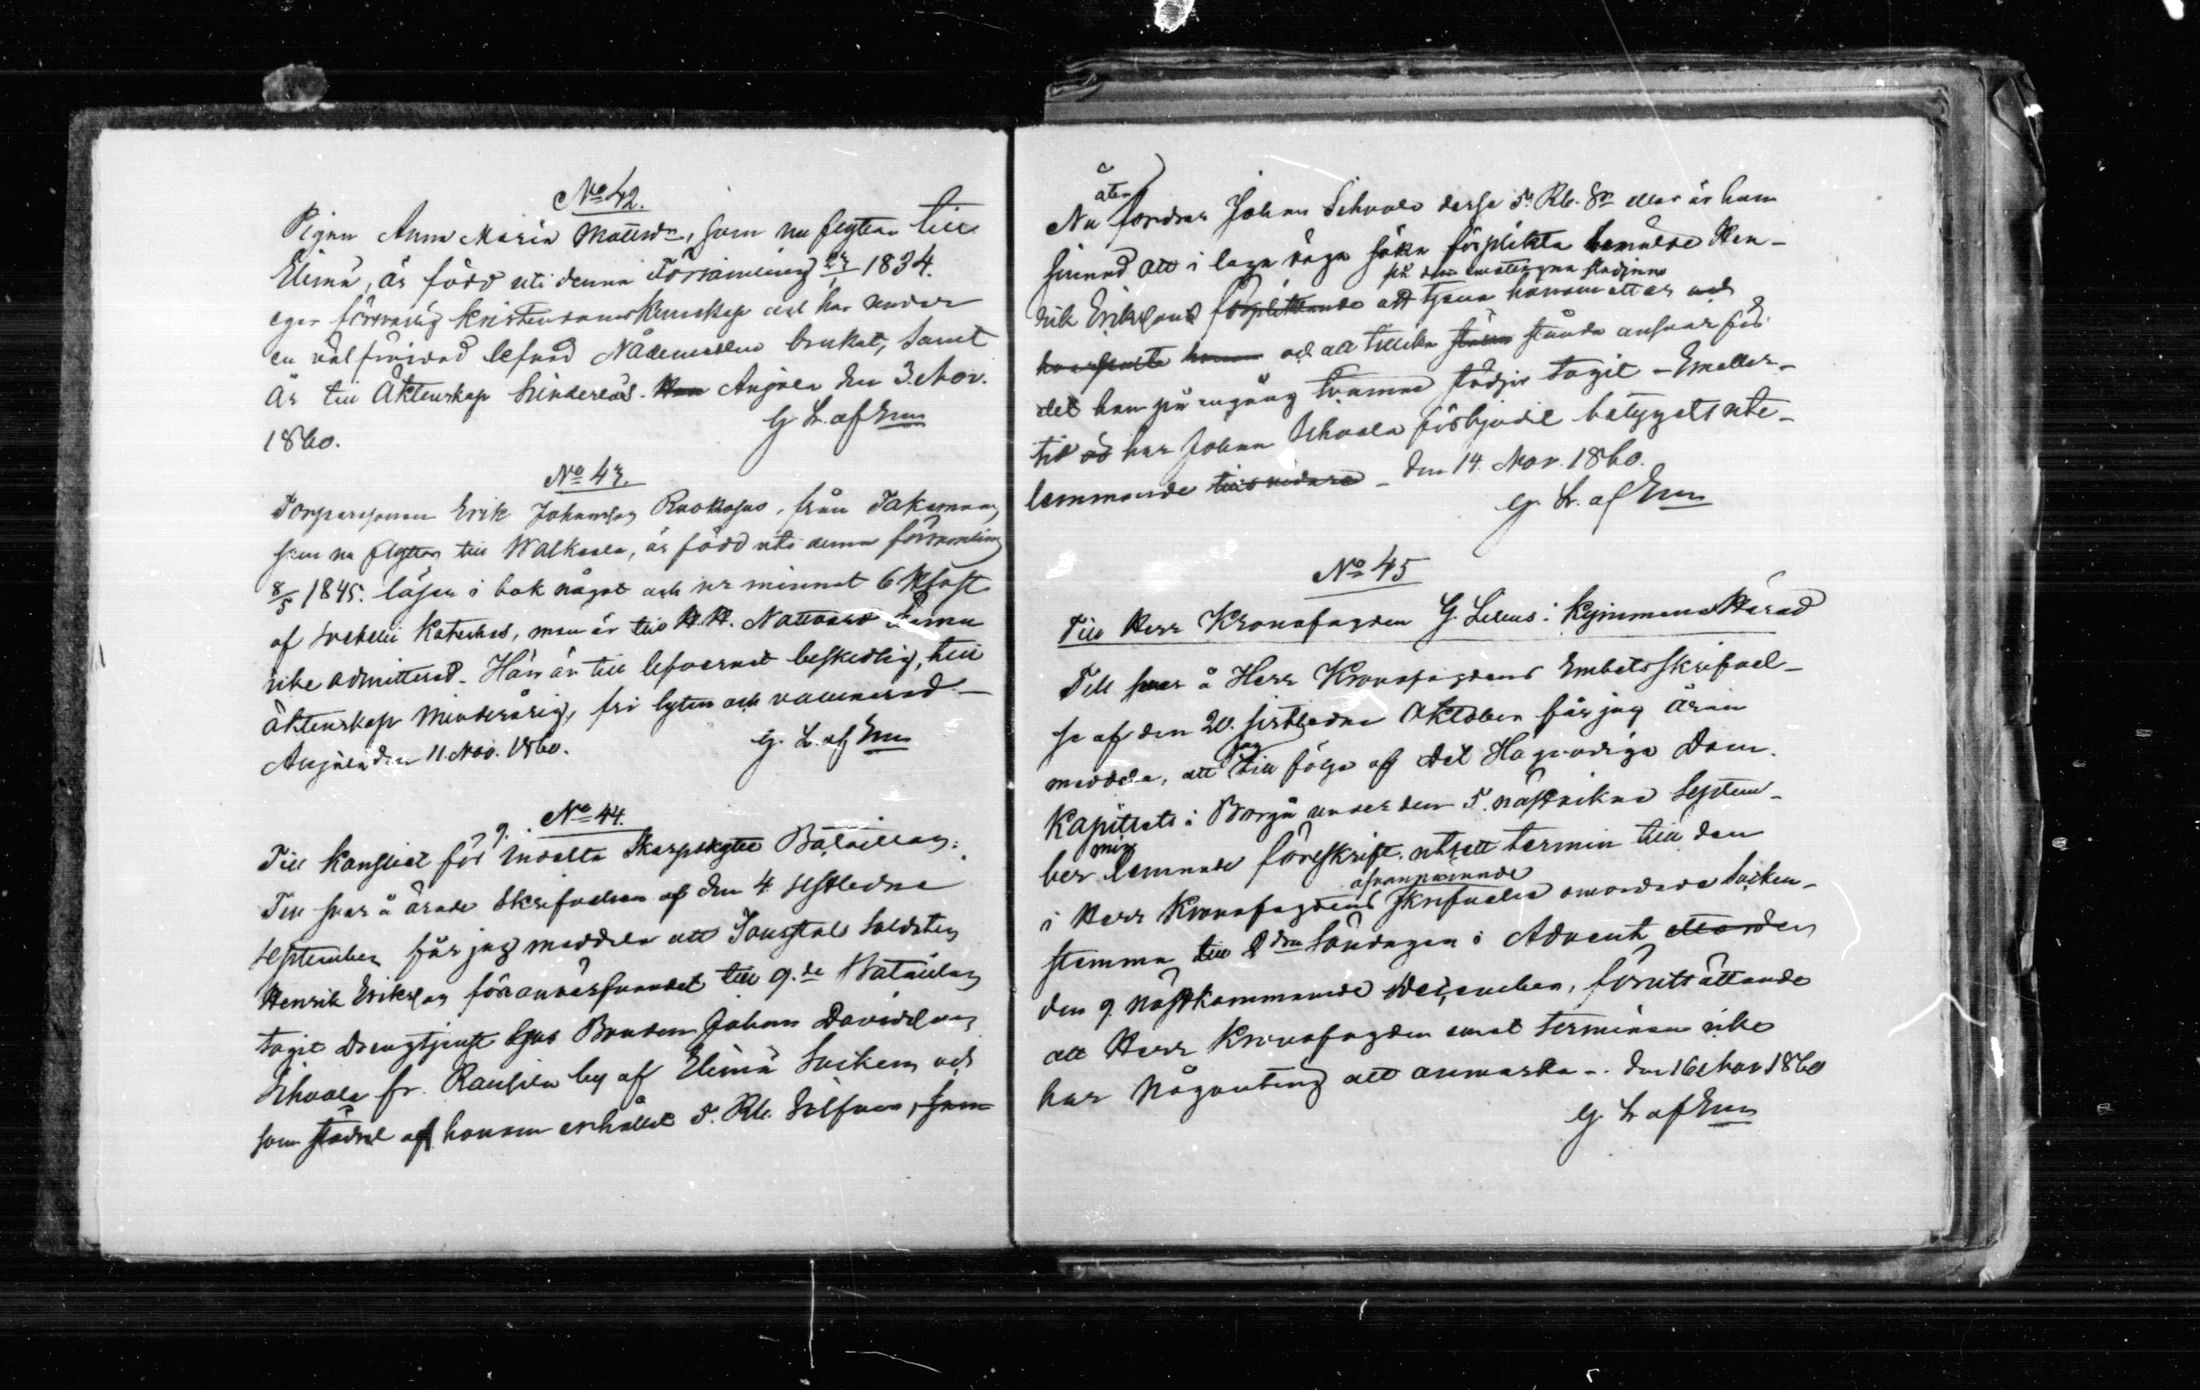 No 42.
Pigan Anna Maria Mattsdr, som nu flyttar till
Elimä, är född uti denna Församling 1834.
eger försvarlig kristendomskunskap och har under
en välfrejdad lefnad Nådemedlen brukat, samt
är till Äktenskap hinderlös. Anjala den 3. Nov.
1860.
G. L. af Enn
No 43.
Torparesonen Erik Johansson Ruokojus, från Takamaa,
som nu flyttar till Walkeala, är född uti denna församling
8/5 1845. läser i bok något och ur minnet 6 St
af Svebelii Kateches, men är till H. H. Nattvard ännu
icke admitterad. Hän är till lefvernet beskedlig, till
äktenskap minderårig, fri lyten och vaccinerad –
Anjala den 11. Nov. 1860.
G. L. af Enn
No 44.
Till Kansliet för 9. Indelta Skarpskytte Bataillon:
Till svar å ärade skrifvelsen af den 4 sistledne
September får jag meddela att Soldaten
Henrik Eriksson före anvärfvandet till 9.de Bataillon
tagit Drengtjenst hos Bonden Johan Davidsson
Sihvola fr. Raussila by af Elimä Socken och
som städsel af honom erhållit 5. Rb. Silfver, som
åter
Nu fordrar Johan Sihvola dessa 5. Rb. Sr eller är han
sinnad att i laga väga söka förplikta bemälde Hen-
på den emottagna städjan
rik Eriksson förpliktande att tjena honom eller och
och att tillika stånda ansvar för
det han på en gång tvänne städjor tagit – Emeller-
tid har Johan Sihvola förbjudit betygets ute-
lemnande tills vidare – Den 14. Nov. 1860.
G. L. af Enn
No 45
Till Herr Kronofogden G. Lilius i Kymmene Härad
Till svar å Herr Kronofogdens Embetsskrifvel-
se af den 20. sistledne Oktober får jag äran
jag
meddela, att till följe af Det Högvördiga Dom-
Kapitlets i Borgå under den 5. nästvikne Septem-
mig
ber lemnade föreskrift utsatt termin till den
ofvannämnde
i Herr Kronofogdens skrifvelse omordade Socken-
stemma till 2dra Söndagen i Advent eller den
den 9. nästkommande December, förutsättande
att Herr Kronofogden emot terminen icke
har någonting att anmärka –. Den 16 Nov 1860
G. L. af Enn